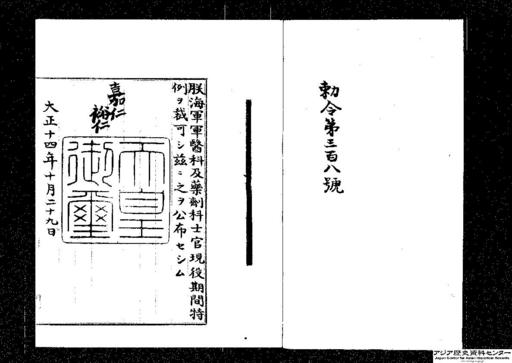 勅令第三百八號
朕海軍軍醫科及藥劑科士官現役期間特
例ヲ裁可シ玆ニ之ヲ公布セシム
嘉仁
裕仁
天皇
御璽
大正十四年十月二十九日
アジア歴史資料センター
Japan Center for Asian Historical Records